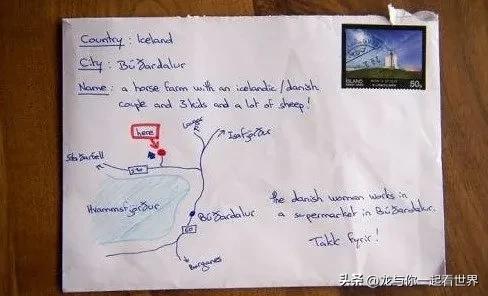 Country: Iceland
City: Búðardalur
Name: a horse farm with an icelandic/danish
couple and 3 kids and a lot of sheep!
ÍSLAND
50g
here
Laugar
Ísafjörður
Staðarfell
590
Hvammsfjörður
Búðardalur
60
Borganes
the danish woman works in
a supermarket in Búðardalur.
Takk fyrir!
头条 @龙与你一起看世界